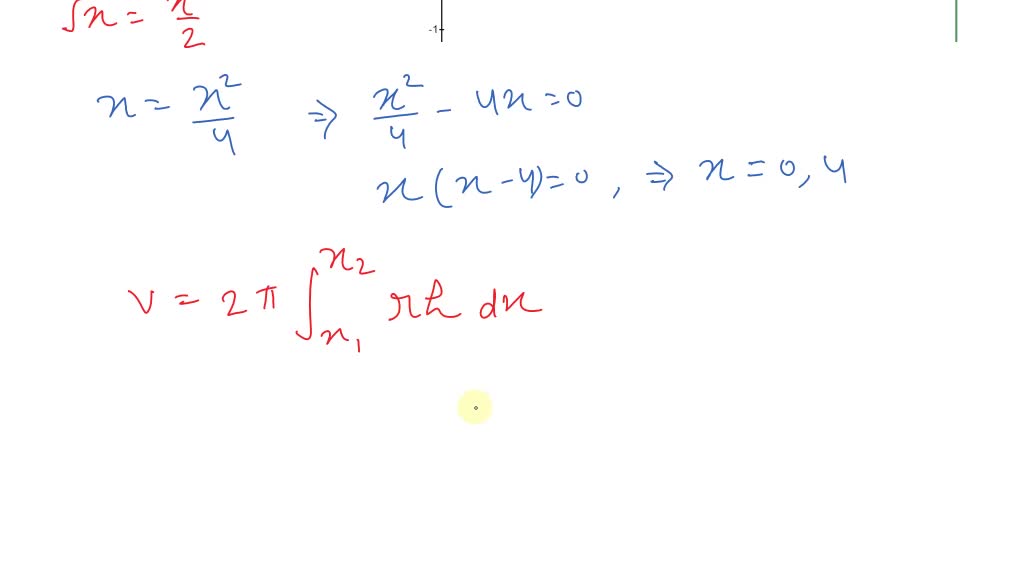 √x = x/2
-1
x = x²/4 ⇒ x²/4 - 4x = 0
x(x-4) = 0, ⇒ x = 0, 4
V = 2π ∫_{x₁}^{x₂} rh dx